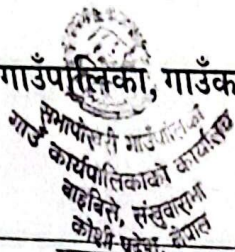 गाउँपालिका, गाउँक
सभापोखरी गाउँपालिका
गाउँ कार्यपालिकाको कार्यालय
बाह्रबिसे, संखुवासभा
कोशी प्रदेश, नेपाल